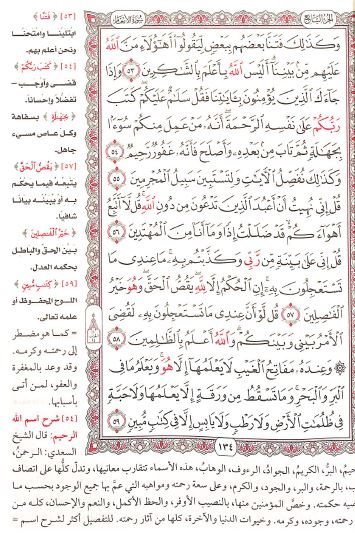 الجزء السابع
سورة الأنعام
وَكَذَٰلِكَ فَتَنَّا بَعْضَهُم بِبَعْضٍ لِّيَقُولُوٓا۟ أَهَـٰٓؤُلَآءِ مَنَّ ٱللَّهُ
عَلَيْهِم مِّنۢ بَيْنِنَآ ۗ أَلَيْسَ ٱللَّهُ بِأَعْلَمَ بِٱلشَّـٰكِرِينَ ٥٣ وَإِذَا
جَآءَكَ ٱلَّذِينَ يُؤْمِنُونَ بِـَٔايَـٰتِنَا فَقُلْ سَلَـٰمٌ عَلَيْكُمْ ۖ كَتَبَ
رَبُّكُمْ عَلَىٰ نَفْسِهِ ٱلرَّحْمَةَ ۖ أَنَّهُۥ مَنْ عَمِلَ مِنكُمْ سُوٓءًۢا
بِجَهَـٰلَةٍ ثُمَّ تَابَ مِنۢ بَعْدِهِۦ وَأَصْلَحَ فَأَنَّهُۥ غَفُورٌ رَّحِيمٌ ٥٤
وَكَذَٰلِكَ نُفَصِّلُ ٱلْـَٔايَـٰتِ وَلِتَسْتَبِينَ سَبِيلُ ٱلْمُجْرِمِينَ ٥٥
قُلْ إِنِّى نُهِيتُ أَنْ أَعْبُدَ ٱلَّذِينَ تَدْعُونَ مِن دُونِ ٱللَّهِ ۚ قُل لَّآ أَتَّبِعُ
أَهْوَآءَكُمْ ۙ قَدْ ضَلَلْتُ إِذًا وَمَآ أَنَا۠ مِنَ ٱلْمُهْتَدِينَ ٥٦
قُلْ إِنِّى عَلَىٰ بَيِّنَةٍ مِّن رَّبِّى وَكَذَّبْتُم بِهِۦ ۚ مَا عِندِى مَا
تَسْتَعْجِلُونَ بِهِۦٓ ۚ إِنِ ٱلْحُكْمُ إِلَّا لِلَّهِ ۖ يَقُصُّ ٱلْحَقَّ ۖ وَهُوَ خَيْرُ
ٱلْفَـٰصِلِينَ ٥٧ قُل لَّوْ أَنَّ عِندِى مَا تَسْتَعْجِلُونَ بِهِۦ لَقُضِىَ
ٱلْأَمْرُ بَيْنِى وَبَيْنَكُمْ ۗ وَٱللَّهُ أَعْلَمُ بِٱلظَّـٰلِمِينَ ٥٨
۞ وَعِندَهُۥ مَفَاتِحُ ٱلْغَيْبِ لَا يَعْلَمُهَآ إِلَّا هُوَ ۚ وَيَعْلَمُ مَا فِى
ٱلْبَرِّ وَٱلْبَحْرِ ۚ وَمَا تَسْقُطُ مِن وَرَقَةٍ إِلَّا يَعْلَمُهَا وَلَا حَبَّةٍ
فِى ظُلُمَـٰتِ ٱلْأَرْضِ وَلَا رَطْبٍ وَلَا يَابِسٍ إِلَّا فِى كِتَـٰبٍ مُّبِينٍ ٥٩
١٣٤
[٥٣] ﴿فَتَنَّا﴾
ابتلينا وامتحنا
ونحن أعلم بهم.
[٥٤] ﴿كَتَبَ رَبُّكُمْ﴾
قضى وأوجب -
تفضلاً وإحساناً.
﴿بِجَهَالَةٍ﴾ بسفاهة
وكل عاصٍ مسيء
جاهل.
[٥٧] ﴿يَقُصُّ الْحَقَّ﴾
يتبعه فيما يحكم
به أو يبينه بياناً
شافياً.
﴿خَيْرُ الْفَاصِلِينَ﴾
بين الحق والباطل
بحكمه العدل.
[٥٩] ﴿كِتَابٍ مُبِينٍ﴾
اللوح المحفوظ أو
علمه تعالى.
= كما هو مضطر
إلى رحمته وكرمه.
وقد وعد بالمغفرة
والعفو، لمن أتى
بأسبابها.
[٥٤] شرح اسم الله
الرحيم: قال الشيخ
السعدي: الرحمنُ،
حيمُ، البرُّ، الكريمُ، الجوادُ، الرءوفُ، الوهابُ، هذه الأسماء تتقارب معانيها، وتدل كلها على اتصاف
ب، بالرحمة، والبر، والجود، والكرم، وعلى سعة رحمته ومواهبه التي عمَّ بها جميع الوجود بحسب ما
سيه حكمته. وخصَّ المؤمنين منها، بالنصيب الأوفر، والحظ الأكمل، والنعم والإحسان، كله من
رحمته، وجوده، وكرمه. وخيرات الدنيا والآخرة، كلها من آثار رحمته. للتفصيل أكثر لشرح اسم =